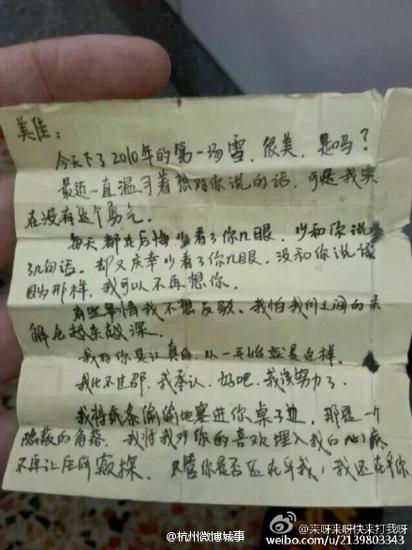 美佳：
今天下了2010年的第一场雪，很美，是吗？
最近一直温习着想对你说的话，可是我实
在没有这个勇气。
每天都在后悔少看了你几眼，少和你说
几句话。却又庆幸少看了你几眼，没和你说话
因为那样，我可以不再想你。
有些事情我不想反驳。我怕我们之间的误
解会越来越深。
我对你是认真的，从一开始就是这样。
我比不过邵，我承认，好吧，我该努力了。
我将纸条偷偷地塞进你桌子边，那是一个
隐蔽的角落。我将我对你的喜欢埋入我的心底
不再让任何窥探。不管你是否还在乎我，我还在乎你
@杭州微博城事
@来呀来呀快来打我呀
weibo.com/u/2139803343